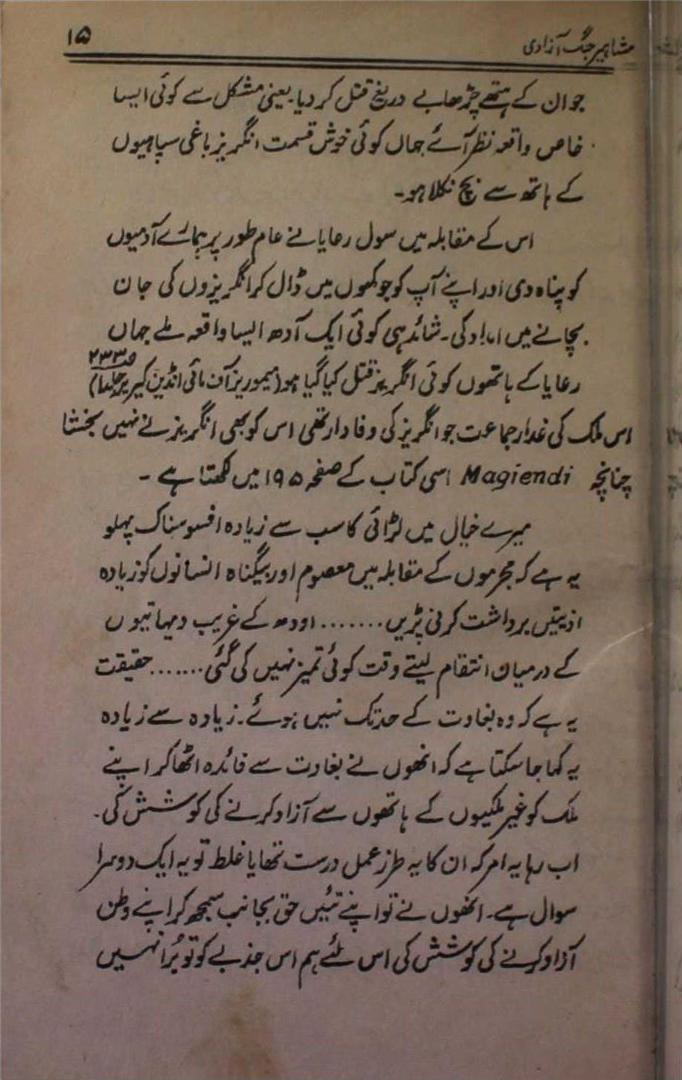 مشاہیر جنگ آزادی
۱۵
جو ان کے ہتھے چڑھا بے دریغ قتل کر دیا۔ یعنی مشکل سے کوئی ایسا
خاص واقعہ نظر آئے جہاں کوئی خوش قسمت انگریز باغی سپاہیوں
کے ہاتھ سے بچ نکلا ہو۔
اس کے مقابلہ میں سول رعایا نے عام طور پر ہمارے آدمیوں
کو پناہ دی اور اپنے آپ کو جوکھوں میں ڈال کر انگریزوں کی جان
بچانے میں امداد کی۔ شائد ہی کوئی ایک آدھ ایسا واقعہ ملے جہاں
رعایا کے ہاتھوں کوئی انگریز قتل کیا گیا ہو (میموریز آف مائی انڈین کیریر جلد۱) ص۲۳۳
اس ملک کی غدار جماعت جو انگریز کی وفادار تھی اس کو بھی انگریز نے نہیں بخشا
چنانچہ Magiendi اسی کتاب کے صفحہ ۱۹۵ میں لکھتا ہے ۔
میرے خیال میں لڑائی کا سب سے زیادہ افسوسناک پہلو
یہ ہے کہ مجرموں کے مقابلہ میں معصوم اور بیگناہ انسانوں کو زیادہ
اذیتیں برداشت کرنی پڑیں ....... اودھ کے غریب دیہاتیوں
کے درمیان انتقام لیتے وقت کوئی تمیز نہیں کی گئی ...... حقیقت
یہ ہے کہ وہ بغاوت کے حد تک نہیں ہوئے۔ زیادہ سے زیادہ
یہ کہا جا سکتا ہے کہ انھوں نے بغاوت سے فائدہ اٹھا کر اپنے
ملک کو غیر ملکیوں کے ہاتھوں سے آزاد کرنے کی کوشش کی۔
اب رہا یہ امر کہ ان کا یہ طرز عمل درست تھا یا غلط تو یہ ایک دوسرا
سوال ہے۔ انھوں نے تو اپنے تئیں حق بجانب سمجھ کر اپنے وطن
آزاد کرنے کی کوشش کی اس لئے ہم اس جذبے کو تو بُرا نہیں